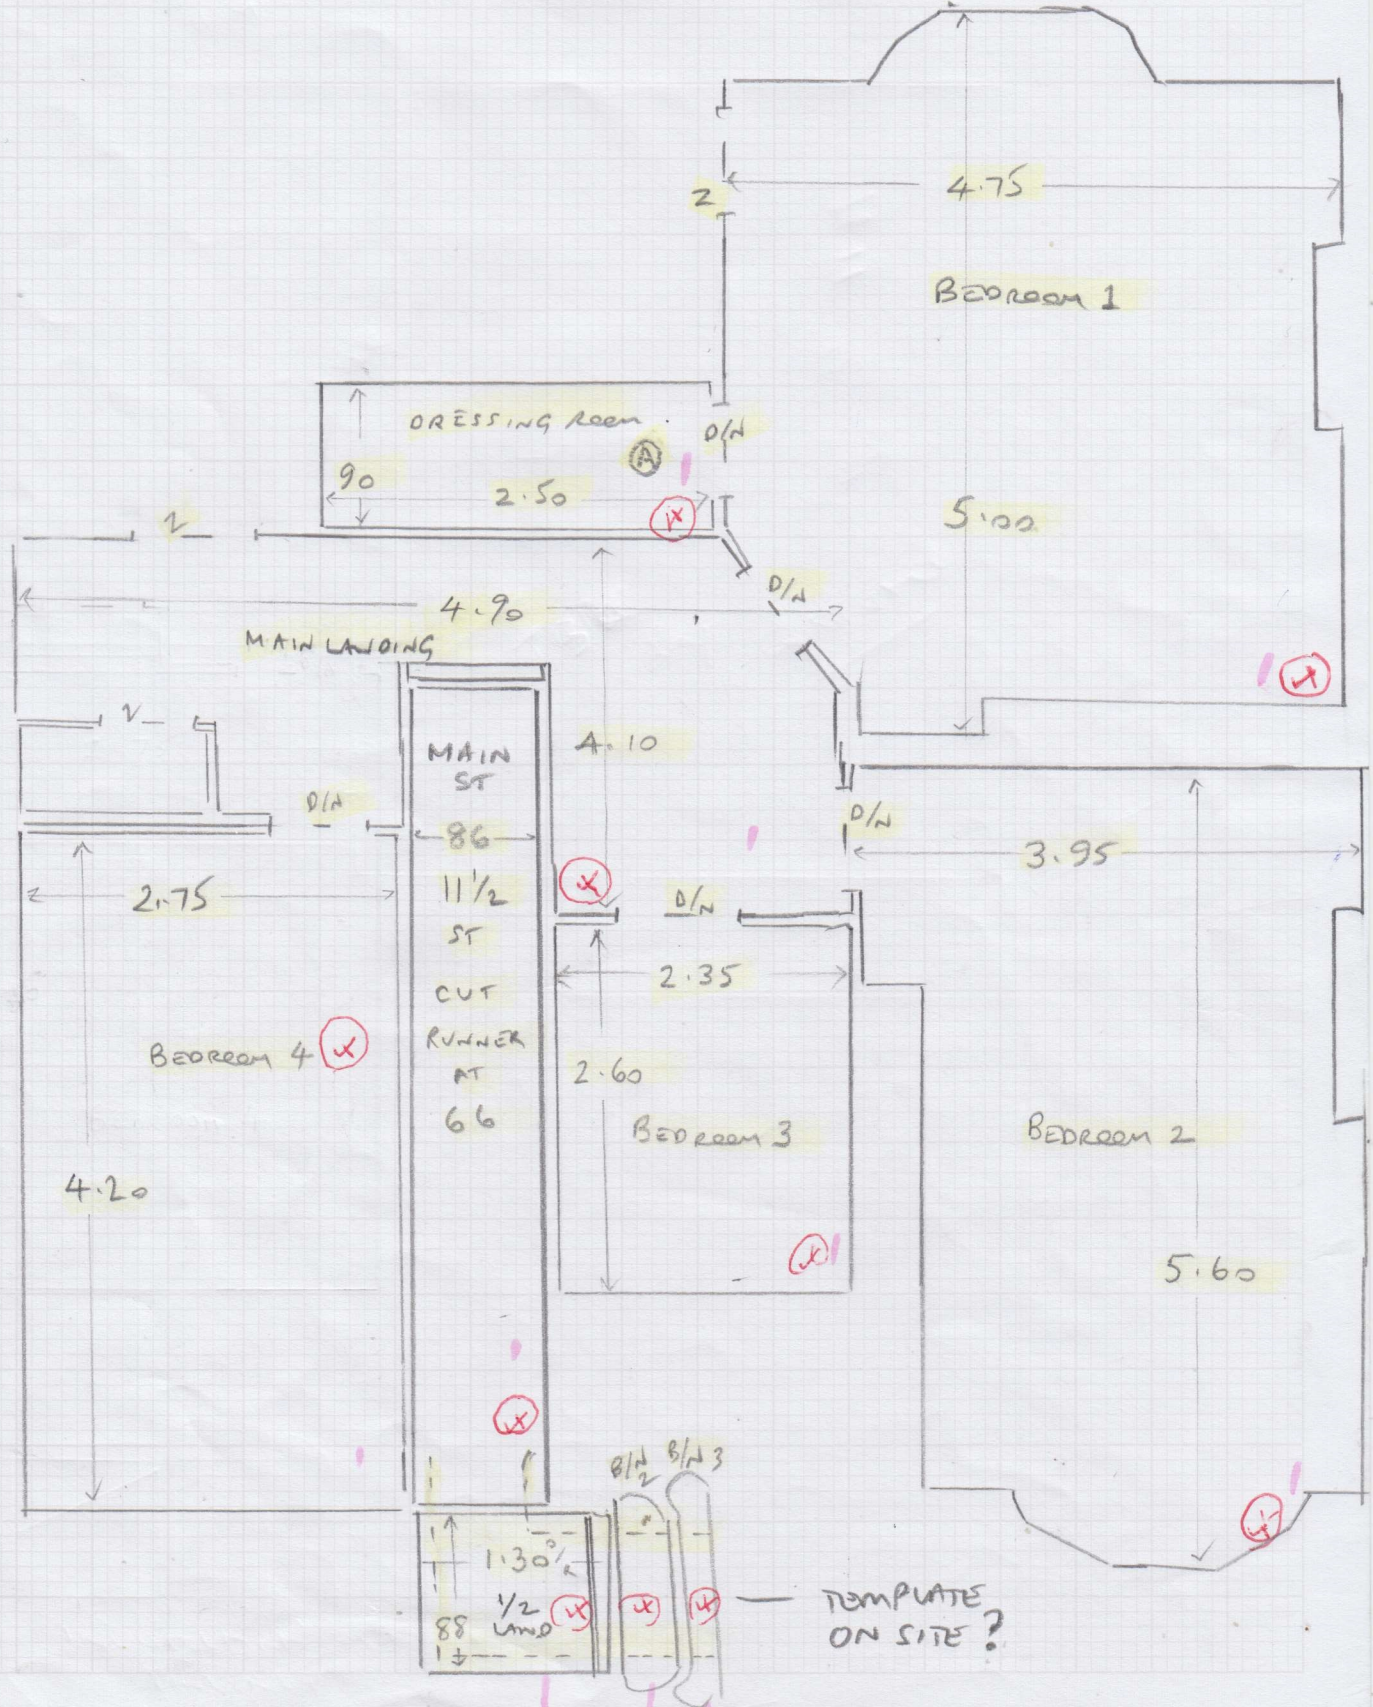 4.75
2
BEDROOM 1
DRESSING ROOM
D/N
A
90
2.50
5.00
2
D/N
4.90
MAIN LANDING
2
4.10
MAIN
ST
D/N
D/N
86
3.95
2.75
11 1/2
D/N
ST
2.35
CUT
RUNNER
AT
66
BEDROOM 4
2.60
BEDROOM 3
BEDROOM 2
4.20
5.60
B/N
2
B/N 3
1.30
1/2
LAND
88
TEMPLATE
ON SITE?